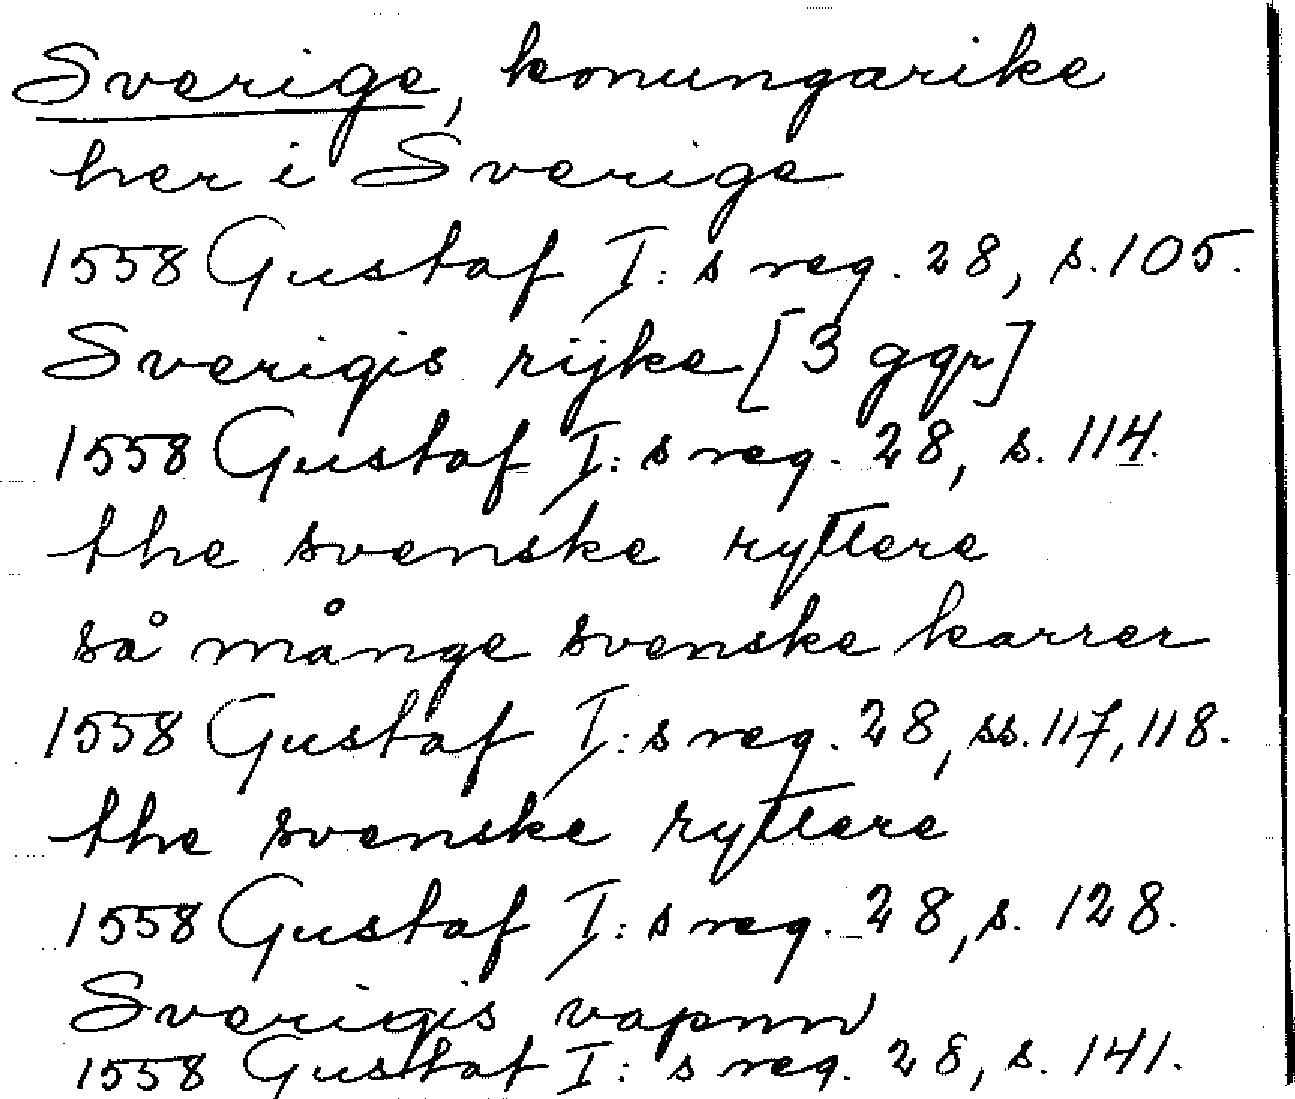 Sverige, konungarike
her i Sverige
1558 Gustaf I:s reg. 28, s. 105.
Sverigis rijke [3 ggr]
1558 Gustaf I:s reg. 28, s. 114.
the svenske ryttere
så månge svenske karrer
1558 Gustaf I:s reg. 28, ss. 117, 118.
the svenske ryttere
1558 Gustaf I:s reg. 28, s. 128.
Sverigis vapnn
1558 Gustaf I:s reg. 28, s. 141.